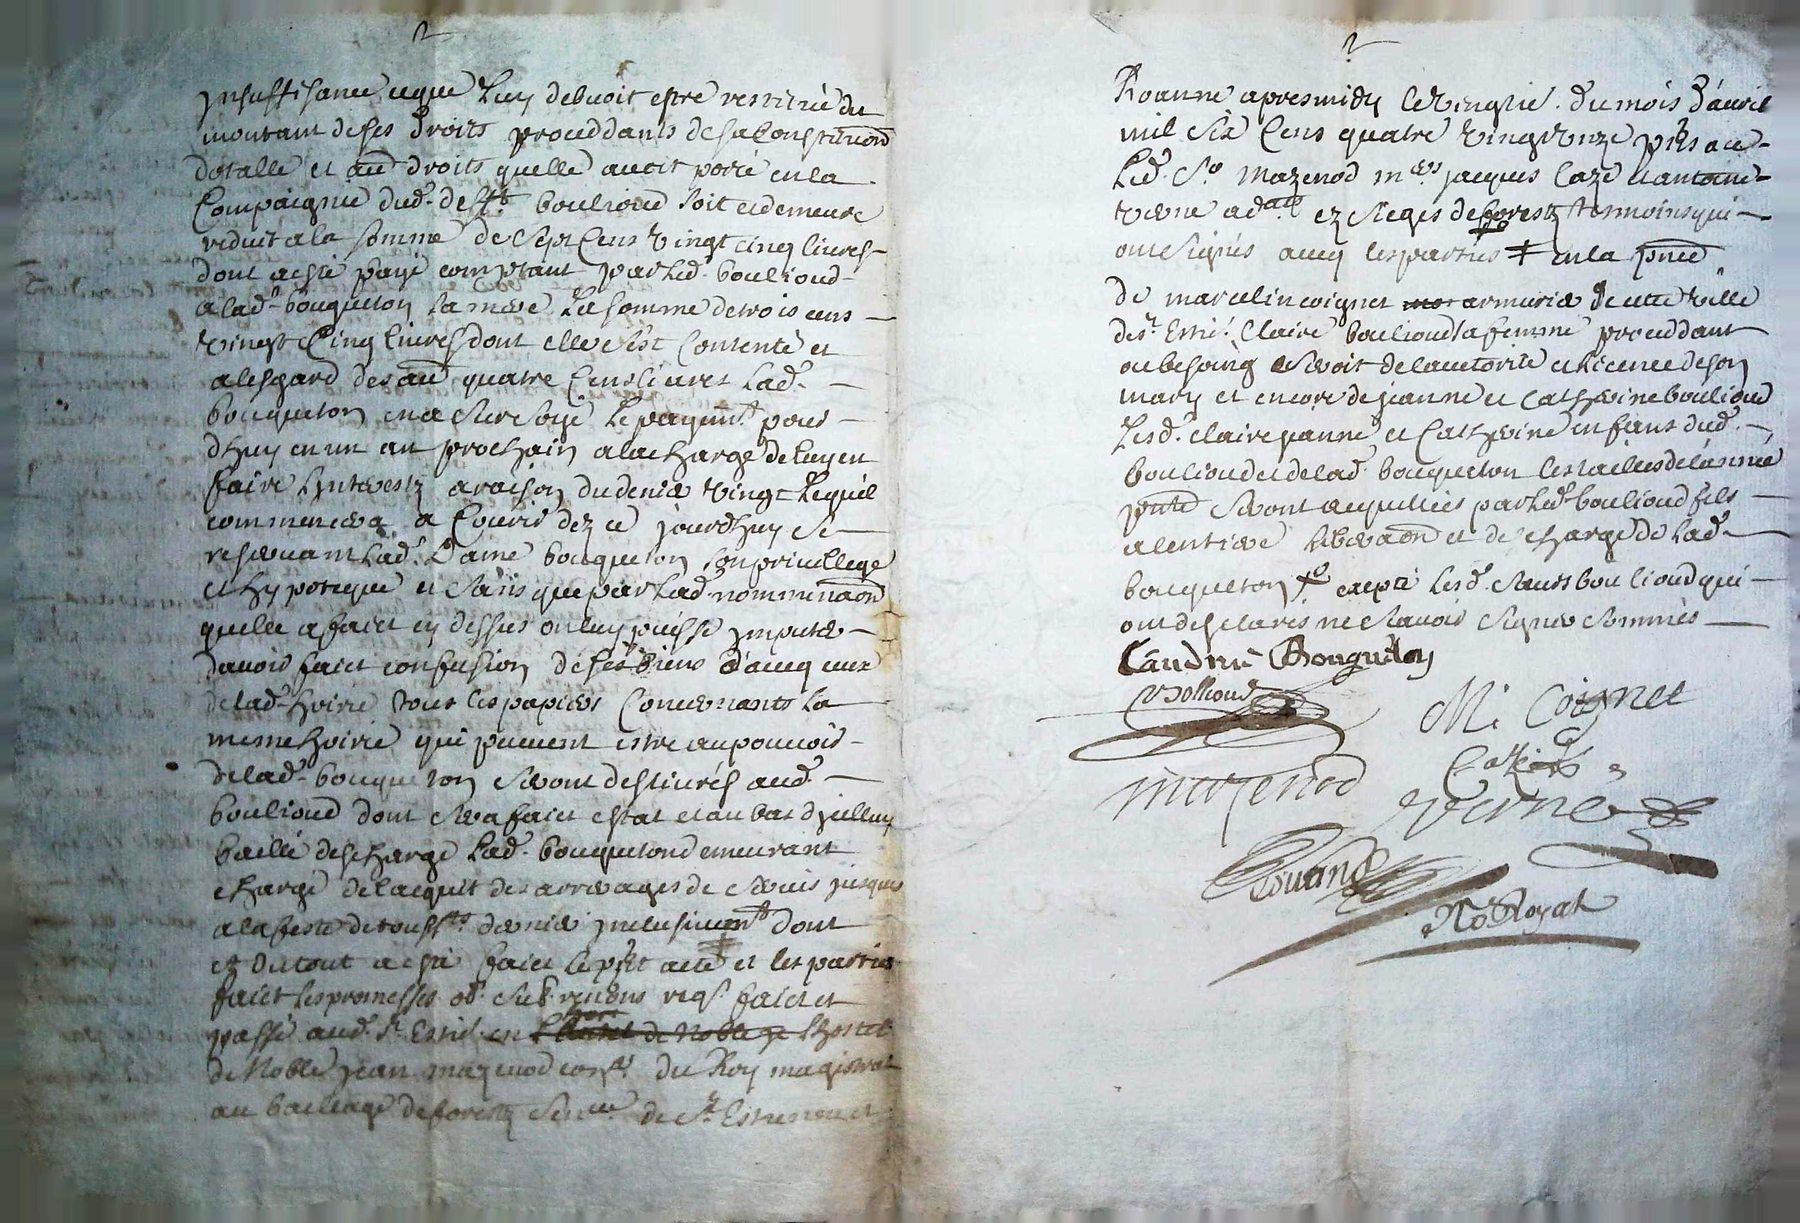 2
Insuffisance et que Luy debvoit estre restitué du
montant de ses droits proceddants de sa Constitution
dotalle et au droits quelle avoit porté en la
Compaignie dud. deft boulioud soit et demeure
reduit a la somme de Sept Cens vingt cinq livres
dont a esté payé comptant par Led. boulioud
a lad. bouqueton sa mere La somme de trois cens
vingt Cinq livres dont elle sest Contenté et
a lesgard des au quatre Cens livres Lad.
bouqueton en a surcoyé Le payemt pour
dhuy en un an prochain a la charge de luy en
faire L'interestz a raison du denier vingt Lequel
commencera a Courir dez ce jourdhuy se
reservant Lad. Dame bouqueton son privillege
et hypoteque et sans que par Lad. nomminaon
quelle a faict cy dessus on luy puisse imputer
davoir faict confusion de ses biens d'avecq ceux
de lad. hoirie tous les papiers Concernants La
mesme hoirie qui peuvent estre au pouvoir
de lad. bouqueton seront deslivrés aud.
boulioud dont sera faict estat et au bas d'jcelluy
baillé descharge Lad. bouqueton demeurant
chargé de lacquit des arrerages de servis jusques
a la feste de toussts dernier jnclusivemt dont
et du tout a esté faict le pnt acte et les parties
faict les promesses ob. sub. renons reqs. faict et
passé aud. St Estne en l'hostel de Noble je Lhostel
de Noble jean mazenod consr du Roy magistrat
au bailiage de forestz Sencee de St Estienne et
2
Roanne apres midy le vingtie. du mois d'avril
mil six Cens quatre vingt unze pnts a ce
Led. Sr mazenod mes jacques Caze et antoine
verne adats ez sieges de forestz tesmoins qui
ont signés avecq les parties ‡ en la pnce
de marcelin coignet armurier de cette ville
de St Estne. Claire boulioud sa femme proceddant
ou besoing seroit de lauctorité et licence de son
mary et encore de jeanne et Catherine boulioud
Lesd. claire jeanne et Catherine enfans dud.
boulioud et de lad. bouqueton les tailles de lannée
pnte seront acquittées par Led. boulioud fils
a lentiere liberaon et descharge de Lad.
bouqueton excepté Lesd. Sœurs boulioud qui
ont desclarés ne scavoir signer sommés
Landrine Bouqueton
Bollioud
M. Coignet
Caze
mazenod
verne
Rouand
No Royal